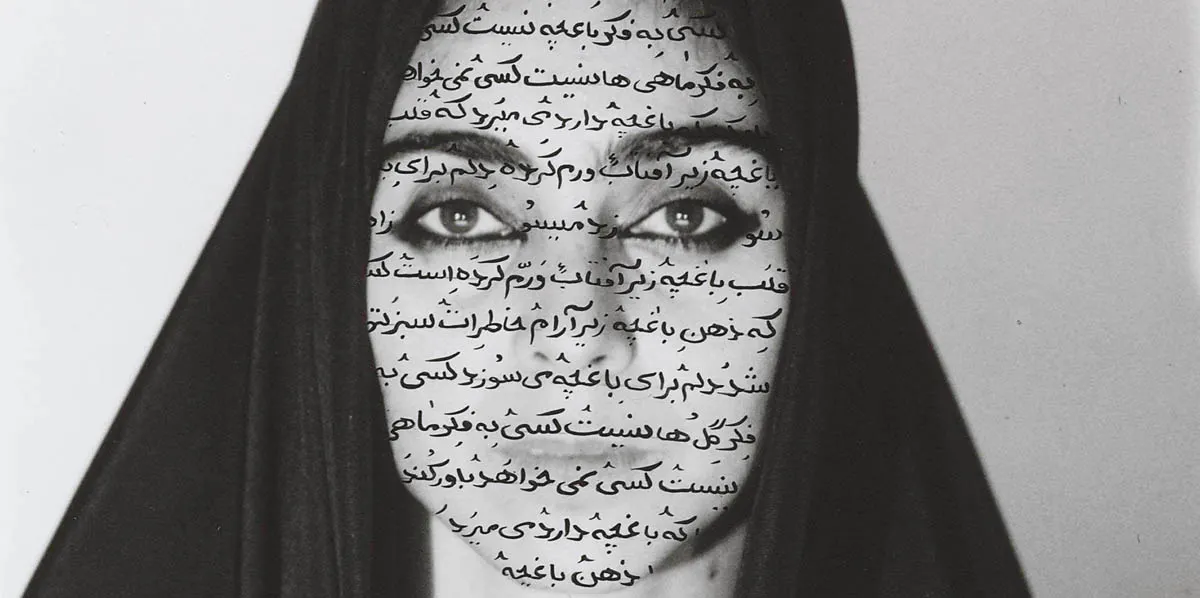 کسی به فکر باغچه نیست کسی
به فکر ماهی ها نیست کسی نمی خواهد
باغچه دارد می میرد که قلب
باغچه زیر آفتاب ورم کرده دلم برای
قلب باغچه زیر آفتاب ورم کرده است که
که ذهن باغچه زیر آرام خاطرات سبز
شد دلم برای باغچه می سوزد کسی به
فکر گل ها نیست کسی به فکر ماهی
نیست کسی نمی خواهد باور کند
که باغچه دارد می میرد
ذهن باغچه